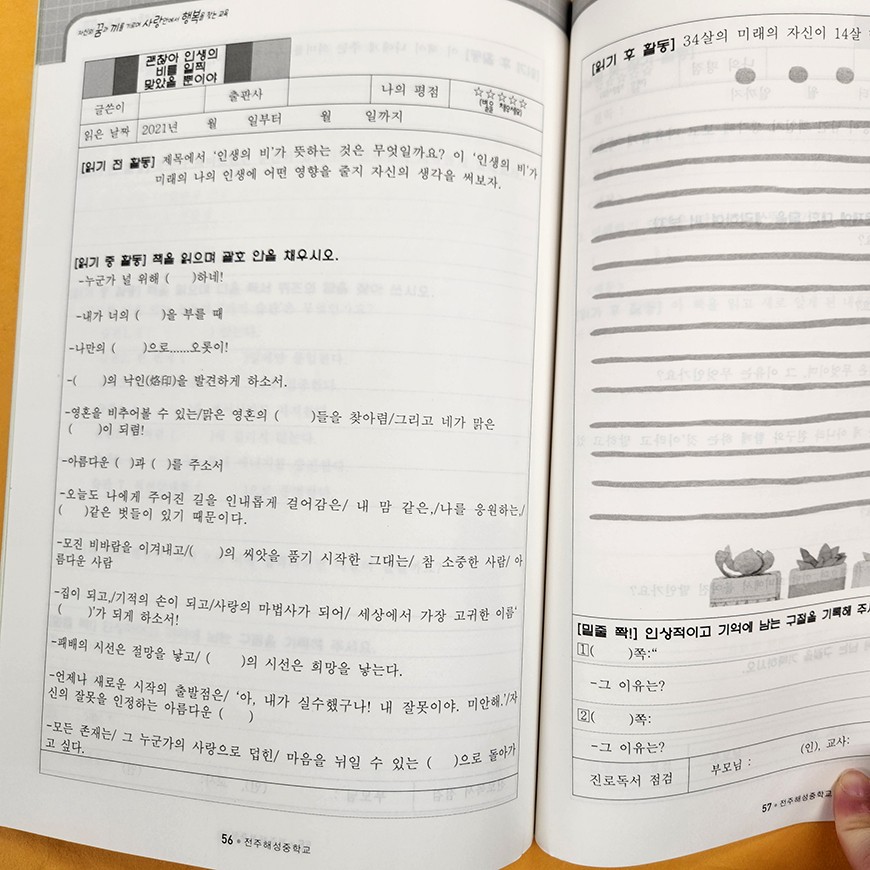 자신의 꿈과 끼를 기르며 사랑안에서 행복을 찾는 교육
괜찮아 인생의
비를 일찍
맞았을 뿐이야
글쓴이 출판사 나의 평점 ☆☆☆☆☆
(별을 채우세요)
읽은 날짜 2021년 월 일부터 월 일까지
[읽기 전 활동] 제목에서 '인생의 비'가 뜻하는 것은 무엇일까요? 이 '인생의 비'가
미래의 나의 인생에 어떤 영향을 줄지 자신의 생각을 써보자.
[읽기 중 활동] 책을 읽으며 괄호 안을 채우시오.
-누군가 널 위해 ( )하네!
-내가 너의 ( )을 부를 때
-나만의 ( )으로......오롯이!
-( )의 낙인(烙印)을 발견하게 하소서.
-영혼을 비추어볼 수 있는/맑은 영혼의 ( )들을 찾아렴/그리고 네가 맑은
( )이 되렴!
-아름다운 ( )과 ( )를 주소서
-오늘도 나에게 주어진 길을 인내롭게 걸어감은/ 내 맘 같은,/나를 응원하는,/
( )같은 벗들이 있기 때문이다.
-모진 비바람을 이겨내고/( )의 씨앗을 품기 시작한 그대는/ 참 소중한 사람/ 아
름다운 사람
-집이 되고,/기적의 손이 되고/사랑의 마법사가 되어/ 세상에서 가장 고귀한 이름'
( )'가 되게 하소서!
-패배의 시선은 절망을 낳고/ ( )의 시선은 희망을 낳는다.
-언제나 새로운 시작의 출발점은/ '아, 내가 실수했구나! 내 잘못이야. 미안해.'/자
신의 잘못을 인정하는 아름다운 ( )
-모든 존재는/ 그 누군가의 사랑으로 덥힌/ 마음을 뉘일 수 있는 ( )으로 돌아가
고 싶다.
56 전주해성중학교
[읽기 후 활동] 34살의 미래의 자신이 14살
[밑줄 쫙!] 인상적이고 기억에 남는 구절을 기록해
1( )쪽:"
-그 이유는?
2( )쪽:
-그 이유는?
진로독서 점검 부모님 : (인), 교사:
57 전주해성중학교